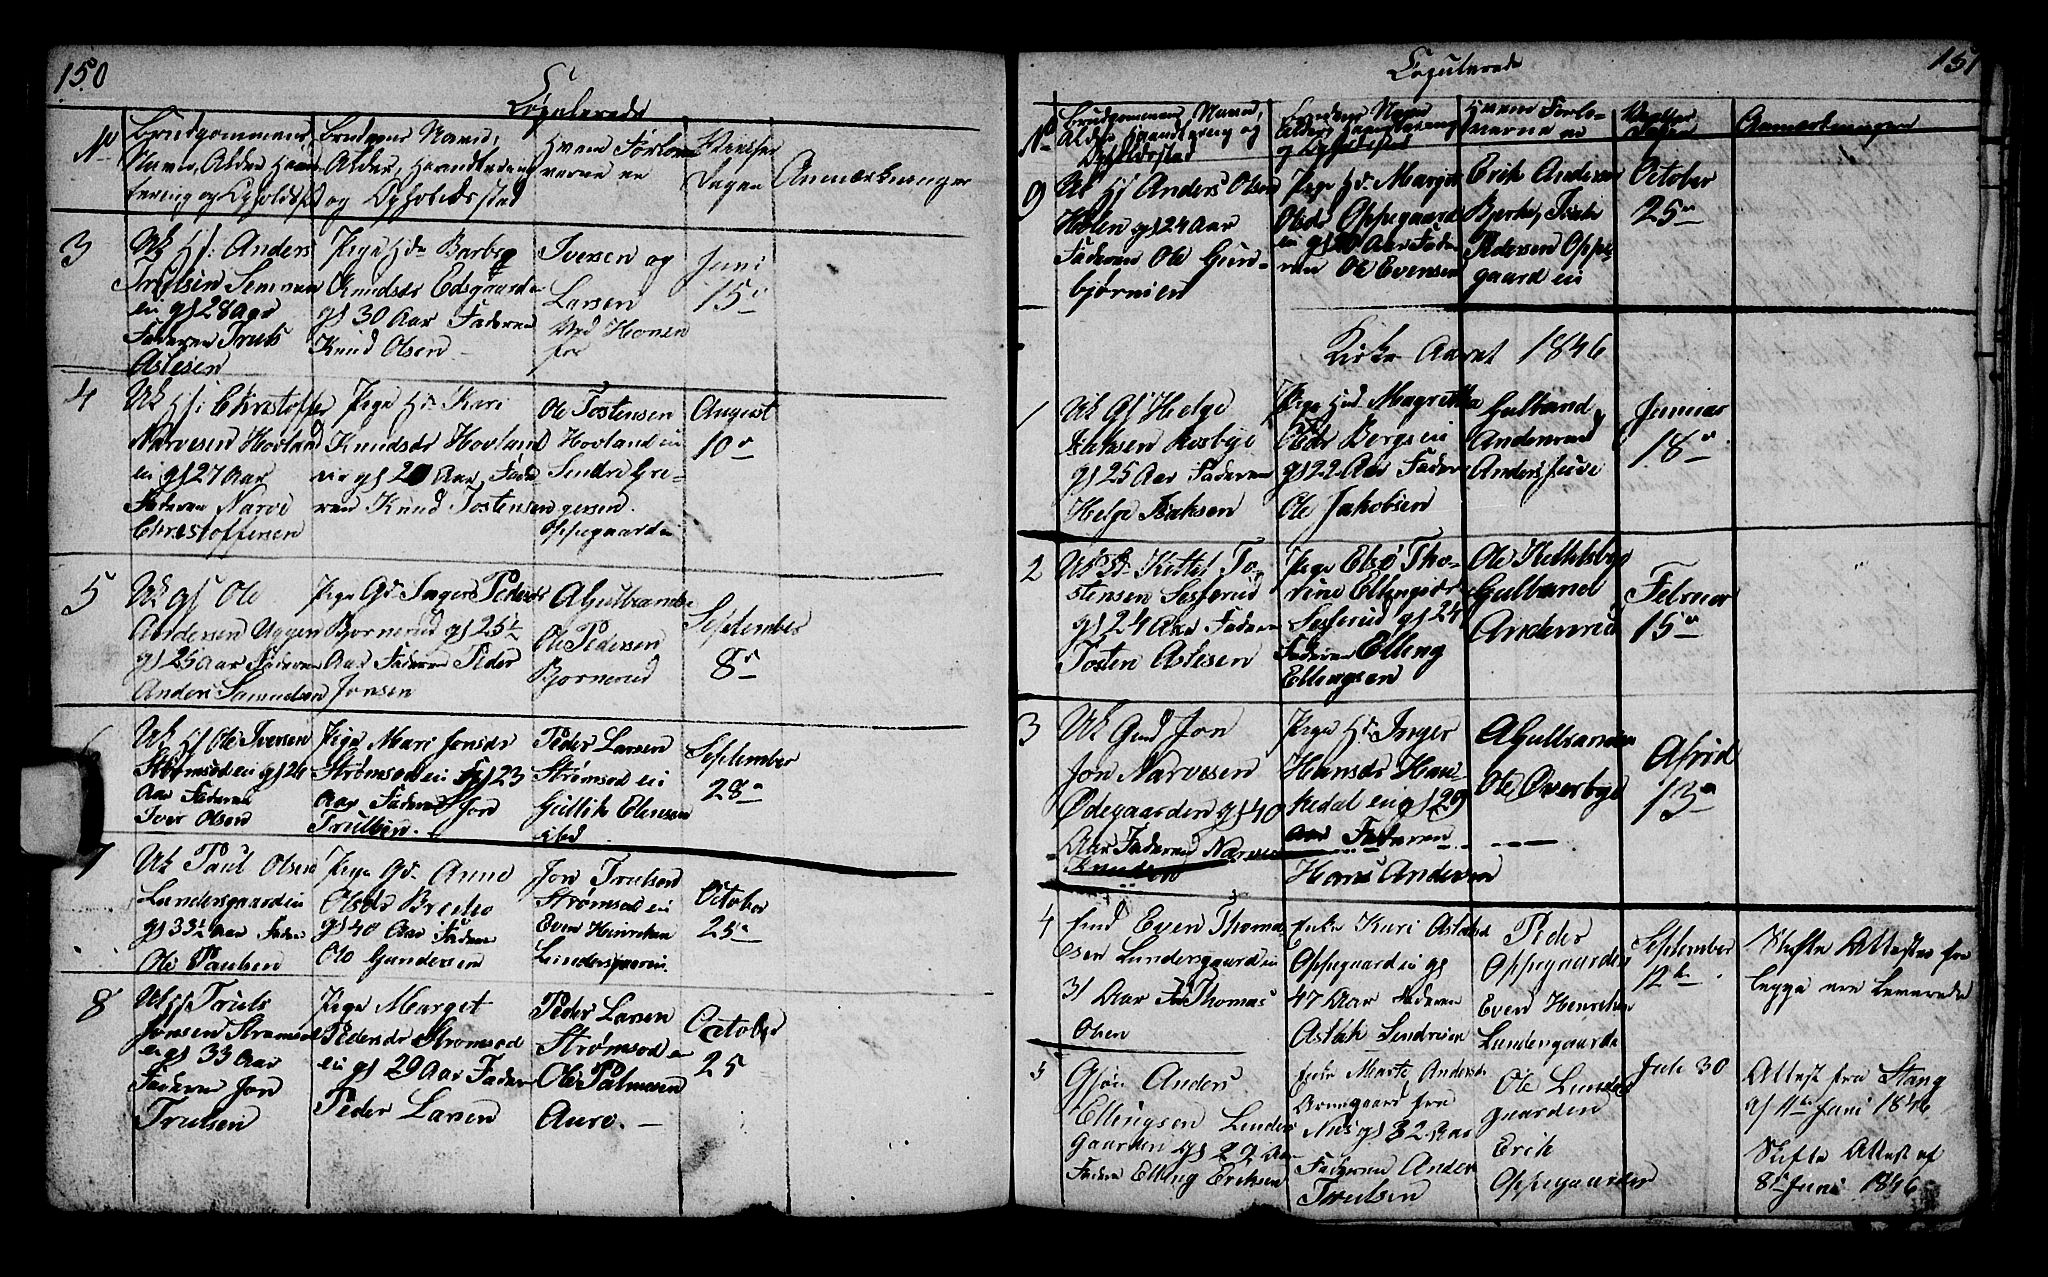 150
Copulerede
No
Brudgommens
Navn, Alder, Haand-
tering og Opholdst
Brudgens Navn,
Alder, Haandtering
og Opholdsstad
Hvem Forlo
verne er
Vielses
Dagen
Anmærkninger
3
Uk Hf: Anders
Trulsen Semmen
ei gf 28 Aar
Faderen Truls
Aslesen
Pige Hd: Barbro
Knudsdr Edsgaarde
gf 30 Aar Faderen
Knud Olsen
Iversen og
Larsen
Ved Honsen
for
Juni
15de
4
Uk Hf: Christoffer
Narvesen Hovland
ei gf 27 Aar
Faderen Narve
Christoffersen
Pige Hd: Kari
Knudsdr Hovland
ei gf 20 Aar, Fade
ren Knud Tostensen
Ole Tostensen
Hovland ei
Sendre Gre-
gersen
Oppegaarden
August
10de
5
Uk gf Ole
Andersen Uggen
gf 25 Aar Faderen
Anders Samuelsen
Pige Gd: Inger Pedersdr
Bjornerud gf 25½
Aar Faderen Peder
Jonsen
A Gulbrands
Ole Pedersen
Bjornerud
September
8de
6
Uk Hf Ole Iversen
Strømsod ei gf 26
Aar Faderen
Iver Olsen
Pige Mari Jonsdr
Strømsod ei gf 23
Aar Faderen Jon
Trulsen.
Peder Larsen
Strømsod ei
Gullik Ellensen
ibd
September
28de
7
Uk Paul Olsen
Lundersgaard ei
gf 33½ Aar Faden
Ole Paulsen
Pige Gd: Anne
Olsdr Brecho
gf 40 Aar Faderen
Ole Gundersen
Jon Trulsen
Strømsod ei
Even Henriksen
Lundersgaard
October
25de
8
Uk Hf Truls
Jonsen Strømsod
ei gf 33 Aar
Faderen Jon
Trulsen
Pige Marget
Pedersdr Strømsod
ei gf 29 Aar Fader
Peder Larsen
Peder Larsen
Strømsod
Ole Palmesen
Auro. —
October
25
151
Copulerede
No
Brudgommens Navn,
Alder Haandtering og
Opholdsstad
Brudens Navn
Alder Haandtering
og Opholdssted
Hvem Forlo-
verne er
Vielses
Dagen
Anmærkninger
9
Uk Hf Anders Olsen
Holen gf 24 Aar
Faderen Ole Gun-
bjørnsen
Pige Hd: Margit
Olsdr Oppegaard
ei gf 20 Aar Fade
ren Ole Evensen
Erik Andersen
Bjerke, Isak
Pedersen Oppe-
gaard ei
October
25de
Kirke Aaret 1846
1
Uk Gf Helge
Isaksen Rosbye
gf 25 Aar Faderen
Helge Isaksen
Pige Hd Magretha
Olsdr Bergs ei
gf 22 Aar Faderen
Ole Jakobsen
Gulband
Anderrud
Anders
Januar
18de
2
Uk St: Kettel To-
stensen Sesserud
gf 24 Aar Faderen
Tosten Aslesen
Pige Else Tho-
rine Ellingsdr
Sesserud gf 24
Faderen Elling
Ellingsen
Ole Kettelsbye
Gulband
Anderrud
Februar
15de
3
Uk Gmd Jon
Jon Narvesen
Ødegaarden gf 40
Aar Faderen Narve
Knudsen
Pige Hd: Inger
Hansdr Hau-
kedal ei gf 29
Aar Faderen
Hans Andersen
A Gulbsanden
Ole Overbye
Afriel
13de
4
Enk Even Thomas
Esen Lundersgaard ei
31 Aar F: Thomas
Olsen
Enke Kari Aslaksd
Oppegaard ei gf
47 Aar Faderen
Aslak Sendresen
Peder
Oppegaarden
Even Henriksen
Lundersgaarde
September
12te
Skifte Attester fre
legge ere Leverede
5
Gjon Anders
Ellingsen Lunders
Gaarden gf 29 Aar
Fadere Elling Eriksen
Enke Marte Andersdr
gaard fra
Næs gf 32 Aar
Faderen Anders
Trulsen
Ole Lunders
gaarden
Erik
Oppegaarden
Juli 30
Attest fra Stang
af 11te Juni 1846
Skifte Attest af
8de Juni 1846